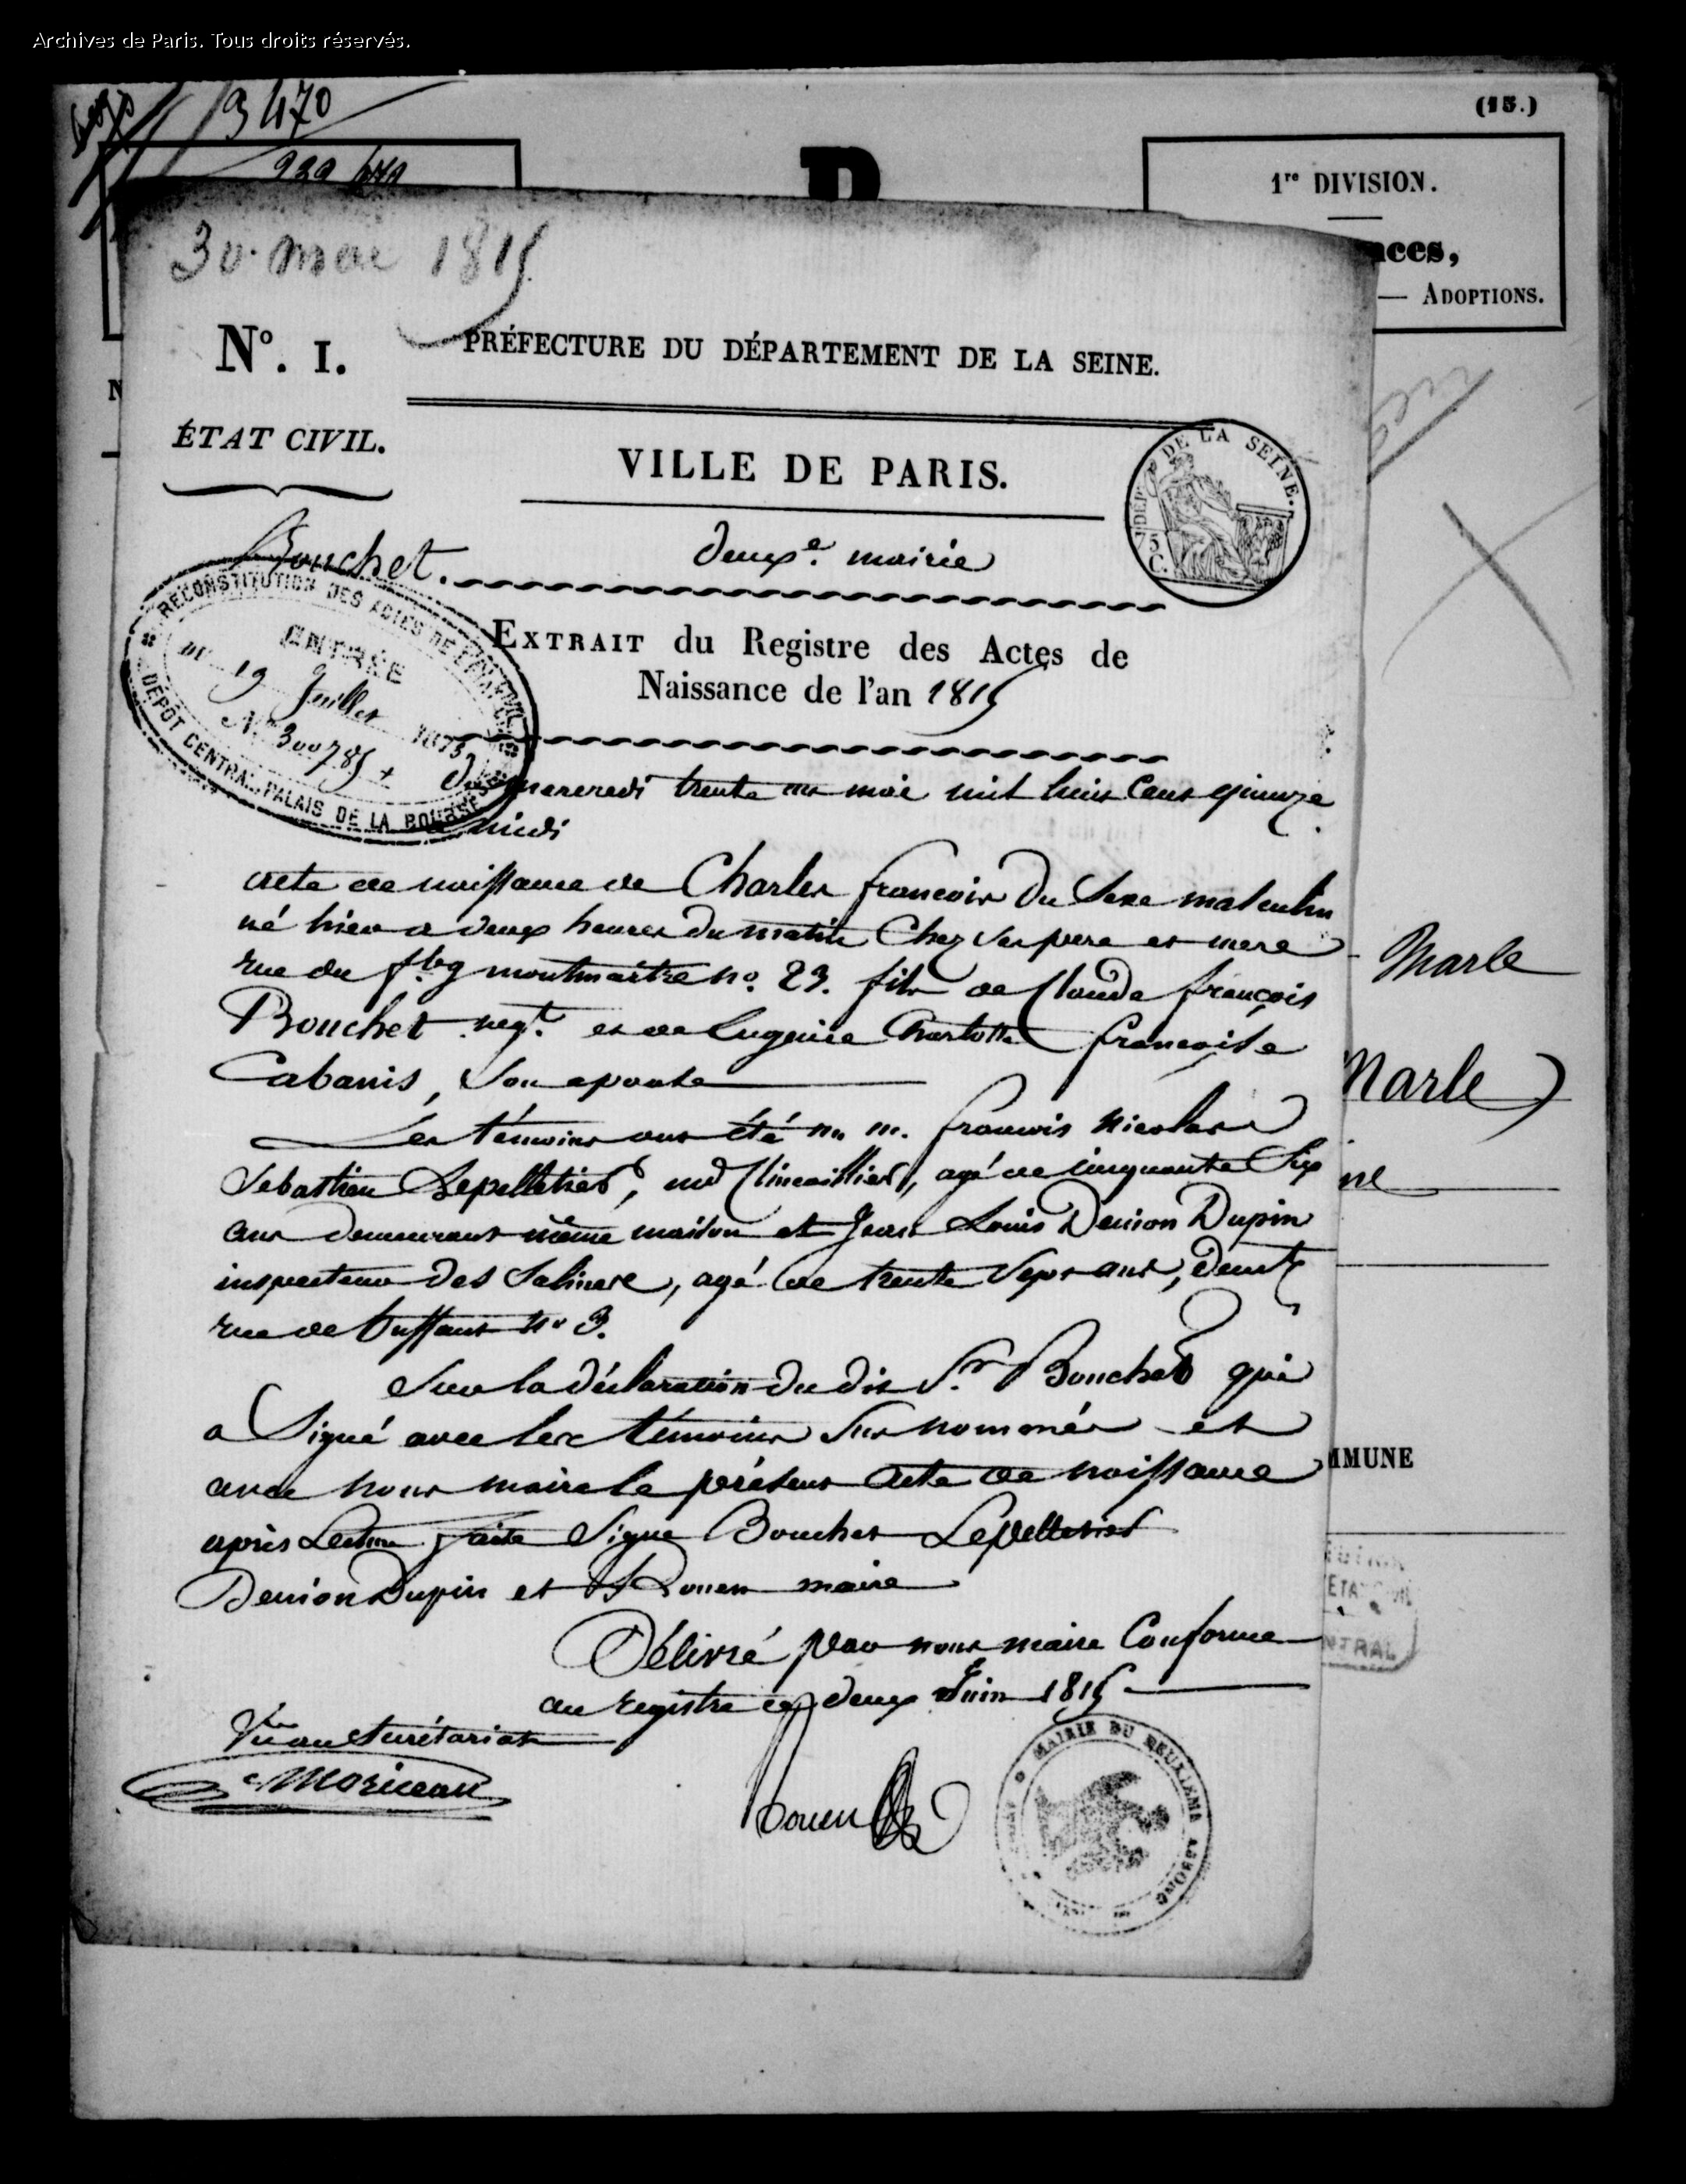 Archives de Paris. Tous droits réservés.
9470
(15.)
1re DIVISION.
— ADOPTIONS.
30. mai 1815
N°. I.
PRÉFECTURE DU DÉPARTEMENT DE LA SEINE.
ÉTAT CIVIL.
VILLE DE PARIS.
DEPt. DE LA SEINE.
75 C.
Bouchet.
deuxe. mairie
RECONSTITUTION DES ACTES DE L'ÉTAT CIVIL
ENTRÉE
DU 19 Juillet 1873
No. 300785
DÉPÔT CENTRAL, PALAIS DE LA BOURSE
EXTRAIT du Registre des Actes de
Naissance de l'an 1815
du mercredi trente un mai mil huit cent quinze
a midi
acte de naissance de Charles francois du Sexe masculin
né hier a deux heures du matin Chez ses pere et mere
rue du fbg montmartre no. 23. fils de Claude françois
Bouchet negt. et de Eugenie Charlotte francoise
Cabanis, Son epouse
Les témoins ont été m. m. francois Nicolas
Sebastien Lepelletier, md Clincaillier, agé de cinquante Six
ans demeurant même maison et Jean Louis Denion Dupin
inspecteur des Salines, agé de trente Sept ans, demt
rue de buffaut no 3.
Sur la déclaration du dit Sr. Bouchet qui
a Signé avec les témoins Sus nommés et
avec nous maire le présent acte de naissance
après Lecture faite Signé Bouchet Lepelletier
Denion Dupin et Rouen maire
Délivré par nous maire Conforme
au registre ce deux Juin 1815
Vu au Secrétariat
Moriceau
Rouen
MAIRIE DU DEUXIEME ARRONDt
Marle
Marle